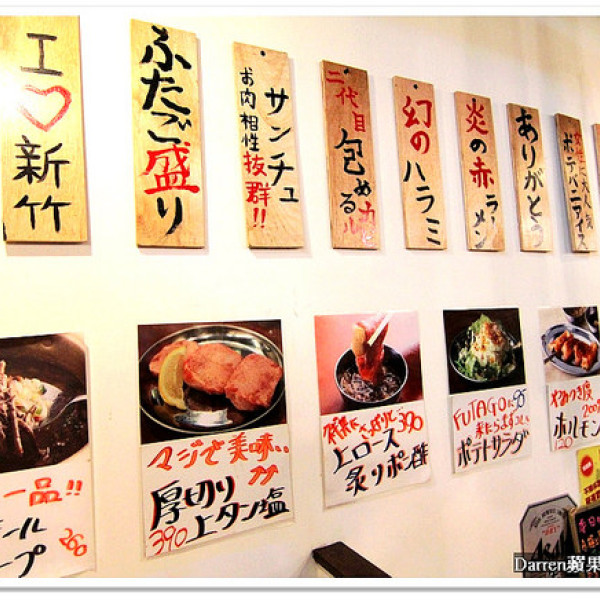 工♡新竹
ふたご盛り
サンチュ
お肉相性抜群!!
二代目
包める
カルビ
幻のハラミ
炎の赤ラーメン
ありがとう
女性に大人気
ポテバニアイス
一品!!
ール
ープ
260
マジで美味い
厚切り
上タン塩
390
390
上ロース
炙りポン酢
FUTAGOの
ポテトサラダ
やみつき度
200%
ホルモン
120
Darren蘋果